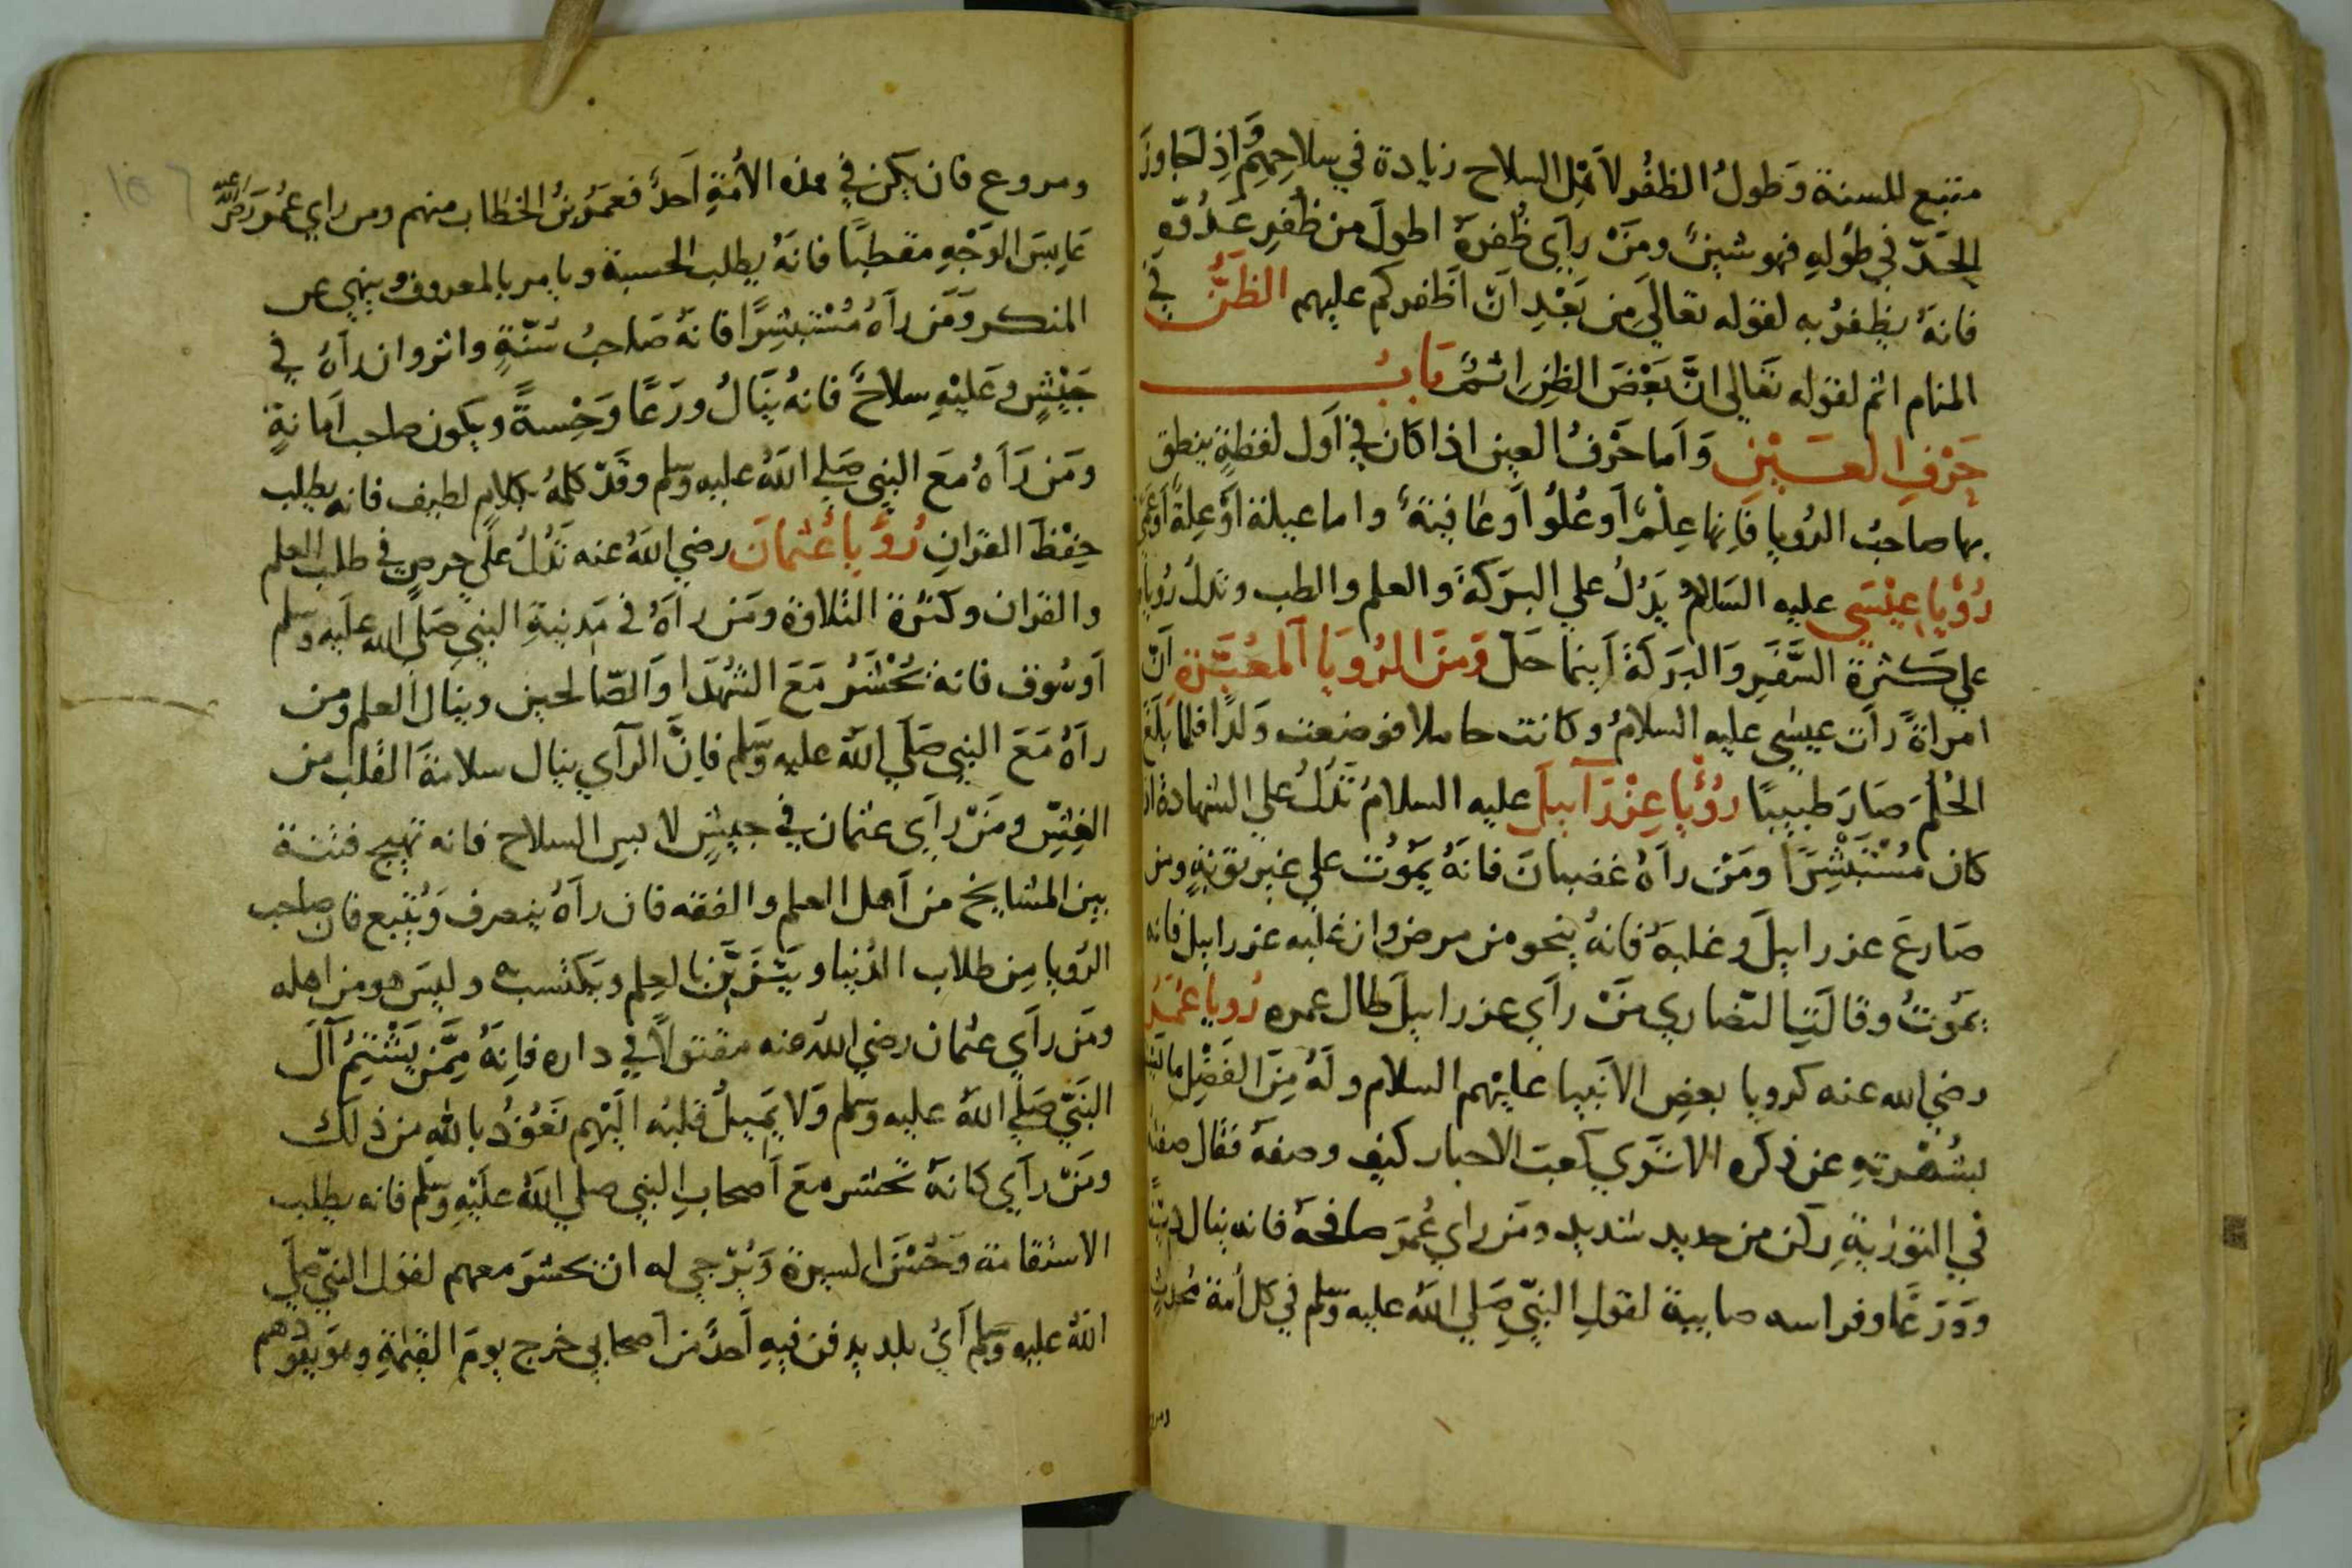 متبع للسنة وَطولُ الظفُر لاَهْل السلاح زيادة في سلاحِهِمْ وَاِذا تجاوزَ
الحَدّ في طُولِهِ فهو شينٌ ومَنْ رأي ظُفرهُ اطولَ من ظُفرِ عَدُوّهِ
فانهُ يظفرُ به لقوله تعاليَ مِن بَعْدِ اَنْ اَظفركم عليهم الظَنُّ في
المنام اثم لقوله تَعَالي انَّ بَعْضَ الظنِ اثمٌ بَابُ
حَرْفِ العَيْنِ وَاَما حَرْفُ العين اذا كَان في اَول لفظةٍ ينطق
بها صاحبُ الرُويا فَاِنها عِلْمٌ اَو عُلُوٌ اَو عَافيَةٌ واما عيلة اَوْ عِلةٌ اَو
رُؤيا عِيْسَي عليه السَلامُ يَدُلُ علي البَركَةَ والعلم والطب وتدلُ رُوياهُ
علي كثرة السَّفَرِ وَالبَرَكَةَ اَينما حَلَ وَمنَ الرُويَا المُعَبَّرَةِ اَنّ
امراةً رأت عيسٰي عليه السلامُ وكانت حاملا فوضعت وَلدًا فلما بَلَغَ
الحُلُمَ صَارَ طبيبًا رُؤيا عِزْرَآييلَ عليه السلامُ تَدُلُ علي الشهادة ان
كان مُسْتَبْشِرًا ومَنْ رآهُ غضبانَ فانهُ يَموُت علي غير توبةٍ ومن
صَارعَ عزراييلَ وغلبَهُ فانهُ ينجو من مرض وان غلبه عزراييل فانه
يَموتُ وقَالَت النصَاري مَنْ رأي عزراييلَ طال عمره رُويا عُمَرَ
رضي الله عنه كرويا بعضِ الاَنبيا عليهم السلام ولَهُ مِنَ الفَضْلِ
بشهْرتهِ عن ذكره الا تَرَي كَعبَ الاحبار كيف وصفهُ فقال صفته
في التوراةِ ركن من حديد شديد ومَن راي عُمَرَ صافحهُ فانه ينال
وَوَرَعًا وفراسه صايبة لقولِ النبّيِ صَلي اللهُ عليه وَسَلم في كل اُمة مُحدثٍ
ومروع فان يكن في هذه الاُمّةِ اَحدٌ فعُمَرُ بنُ الخطاب منهم ومن راي عُمَرَ رَضي اللهُ عنه
عَابِسَ الوَجْهِ مقطبًا فانهُ يطلب الحسبة ويامر بالمعروف وينهي عن
المنكر وَمَن رآهُ مُسْتبشرًا فانهُ صَاحبُ سُنّةٍ واثر وان رآهُ في
جَيْشٍ وعَليْهِ سلاحٌ فانهُ يَنالُ ورَعًا وَحِسبةً ويكون صاحب اَمانةٍ
ومَن رَآهُ مَعَ النبي صَلي اللهُ عليه وسلم وقَدْ كلمهُ بكلامٍ لطيف فانه يطلب
حِفْظَ القرانِ رُؤيا عُثمانَ رضي اللهُ عنه تَدُلُ علي حرصٍ في طلب العلم
والقران وكثرة التلاوة ومَن رآهُ في مَدينةِ النبي صَلي الله عليه وسلم
اَو سُوق فانهُ يُحْشَرُ مَعَ الشُهَدَا وَالصّالحين وينال العلم ومن
رآهُ مَعَ النبي صَلَي اللهُ عليه وَسَلم فاِنَّ الرآي ينال سلامةَ القلب من
الغِشِّ ومَنْ رأَي عثمان في جيشٍ لابس السلاح فانه تهيج فتنة
بين المشايخ من اَهل العلم والفقه فان رآهُ ينصرف وَيُتبع فان صاحب
الرُويا مِن طلاب الدُنيا ويَتَزَيَّنُ بالعِلم ويَكتسبه وليسَ هو من اهله
ومَن رأَي عثمان رضي اللهُ عنه مقتولاً في داره فانهُ مِمَّن يَشْتِمُ آلَ
النبّي صَلي اللهُ عليه وسلم وَلا يَميلُ قلبُه اِلَيْهم نَعُوذُ بالله من ذلك
ومَنْ رأَي كَانهُ يُحشر معَ اَصحابِ النبي صلي اللهُ عَليْهِ وَسَلم فانه يطلب
الاستقامة وَحُسْنَ السيرة وَيُرْجي له ان يُحشرَ معهم لقول النبّي صلي
اللهُ عليه وسلم اَيُ بلد يدفن فيهِ اَحدٌ من اَصحابي خرج يومَ القيٰمةِ وهو يقودهم